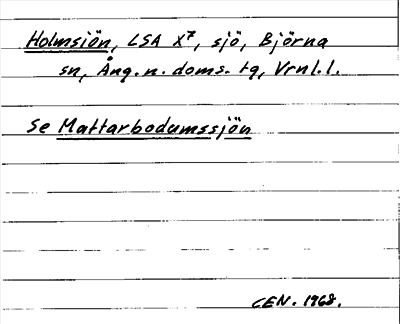 Holmsjön, LSA X⁷, sjö, Björna
sn, Ång. n. doms. tg, Vrnl. l.
Se Mattarbodumssjön
CEN. 1968.